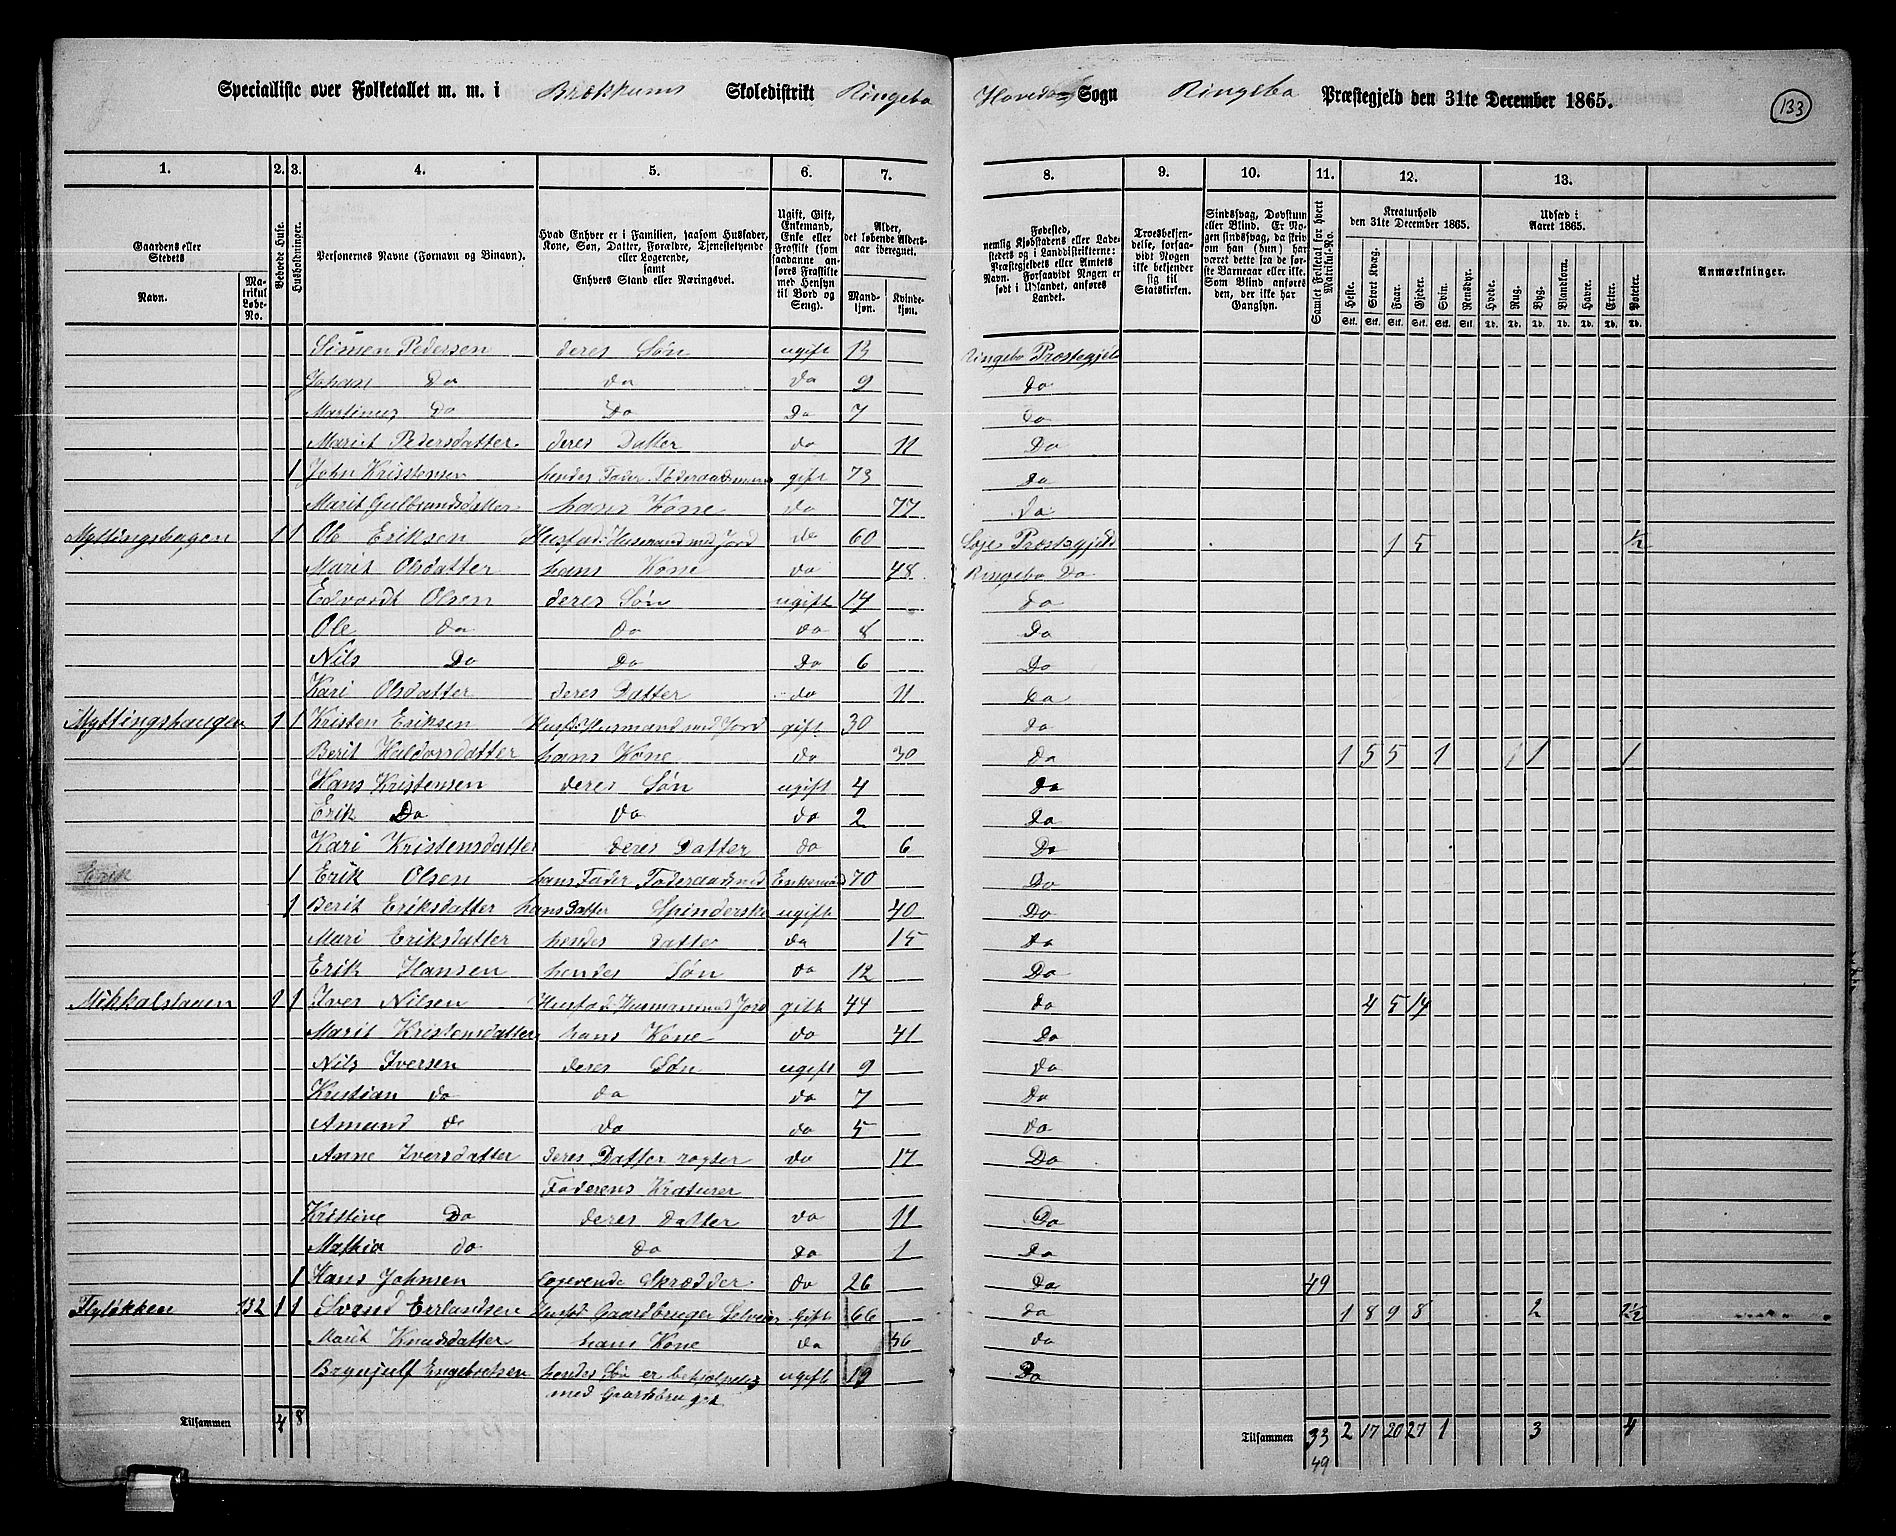 Specialliste over Folketallet m. m. i Brækkums Skoledistrikt Ringebo Hoved Sogn Ringebo Præstegjeld den 31te December 1865.
133
1. 2. 3. 4. 5. 6. 7. 8. 9. 10. 11. 12. 13.
Gaardens eller Stedets
Navn.
Matrikul Løbe-No.
Beboede Huse.
Husholdninger.
Personernes Navne (Fornavn og Binavn).
Hvad Enhver er i Familien, saasom Husfader, Kone, Søn, Datter, Forældre, Tjenestetyende eller Logerende, samt Enhvers Stand eller Næringsvei.
Ugift, Gift, Enkemand, Enke eller Fraskilt (som saadanne anføres Fraskilte med Hensyn til Bord og Seng).
Alder, det løbende Aldersaar iberegnet.
Mandkjøn.
Kvindekjøn.
Fødested, nemlig Kjøbstadens eller Ladestedets eller i Landdistrikterne: Præstegjeldets eller Amtets Navn. Forsaavidt Nogen er født i Udlandet, anføres Landet.
Troesbekjendelse, forsaavidt Nogen ikke bekjender sig til Statskirken.
Sindssvag, Døvstum eller Blind. Er Nogen sindssvag, da skrives om han (hun) har været dette fra de første Barneaar eller ikke. Som Blind anføres den, der ikke har Gangsyn.
Samlet Folketal for hvert Matrikul-No.
Kreaturhold den 31te December 1865.
Heste. Stort Kvæg. Faar. Gjeder. Svin. Rensdyr.
Udsæd i Aaret 1865.
Hvede. Rug. Byg. Blandkorn. Havre. Erter. Poteter.
Anmærkninger.
Simen Pedersen deres Søn ugift 13 Ringebo Præstegjeld
Johan Do do do 9 Do
Martinus Do Do Do 7 Do
Marit Pedersdatter deres Datter do 11 Do
1 John Kristensen hendes Fader Føderaadsmand gift 73 Do
Marit Gulbrandsdatter hans Kone do 77 do
Myttingshagen 1 1 Ole Eriksen Husfad: Husmand med Jord do 60 Præstegjeld 1 5 ½
Marit Olsdatter hans Kone do 48 Ringebo Do
Edvardt Olsen deres Søn ugift 14 do
Ole do do do 8 Do
Nils Do Do Do 6 Do
Kari Olsdatter deres Datter do 11 Da
Myttingshaugen 1 1 Kristen Eriksen Husf: Husmand med Jord gift 30 do
Berit Haldorsdatter hans Kone do 30 Do 1 5 5 1 1 1
Hans Kristensen deres Søn ugift 4 Do
Erik Do do do 2 Do
Kari Kristensdatter deres Datter do 6 Do
Erik 1 Erik Olsen hans Fader Enkemand 70 Do
1 Berit Eriksdatter hans Datter Spinderske ugift 40 Do
Mari Eriksdatter hendes datter do 15 Do
Erik Hansen hendes Søn do 12 Do
1 1 Iver Nilsen Husfad: Husmand med Jord gift 44 do 4 5 14
Marit Kristensdatter hans Kone do 41 Do
Nils Iversen deres Søn ugift 9 do
Kristian do do do 7 Do
Amund do do do 5 do
Anne Iversdatter deres Datter røgter do 17 Do
Faderens Kreaturer
Kristine Do deres Datter do 11 Do
Mathia do do do 1 Do
1 Hans Johnsen Logerende Skrædder do 26 Do 49
Flyløkken 132 1 1 Svend Erlandsen Husfad Gaardbruger Selveier Gift 66 do 1 8 9 8 2 2½
Marit Knudsdatter hans Kone do 56 do
Brynjulf Engebretsen hendes Søn er behjelpelig ugift 19 Do
med Gaardsbruget
Tilsammen 4 8 Tilsammen 33 2 17 20 27 1 3 4
49